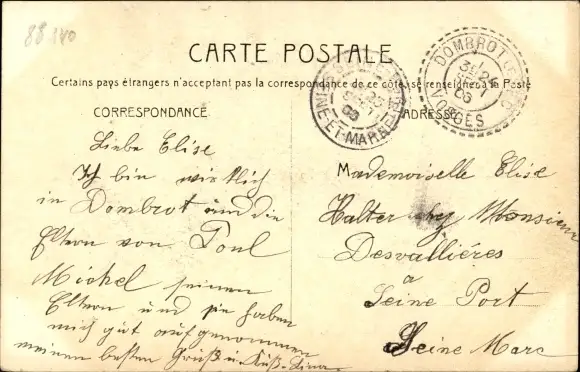 88 140
CARTE POSTALE
Certains pays étrangers n'acceptant pas la correspondance de ce côté, se renseigner à la Poste
CORRESPONDANCE
ADRESSE
DOMBROT
24
06
VOSGES
25
06
SEINE-ET-MARNE
Liebe Elise
Ich bin wirklich
in Dombrot und die
Eltern von Poul
Michel seinen
Eltern und sie haben
mich gut aufgenommen
meinen besten Gruß u Kuß
Mademoiselle Elise
Halter chez Monsieur
Desvallières
a
Seine Port
Seine Marc